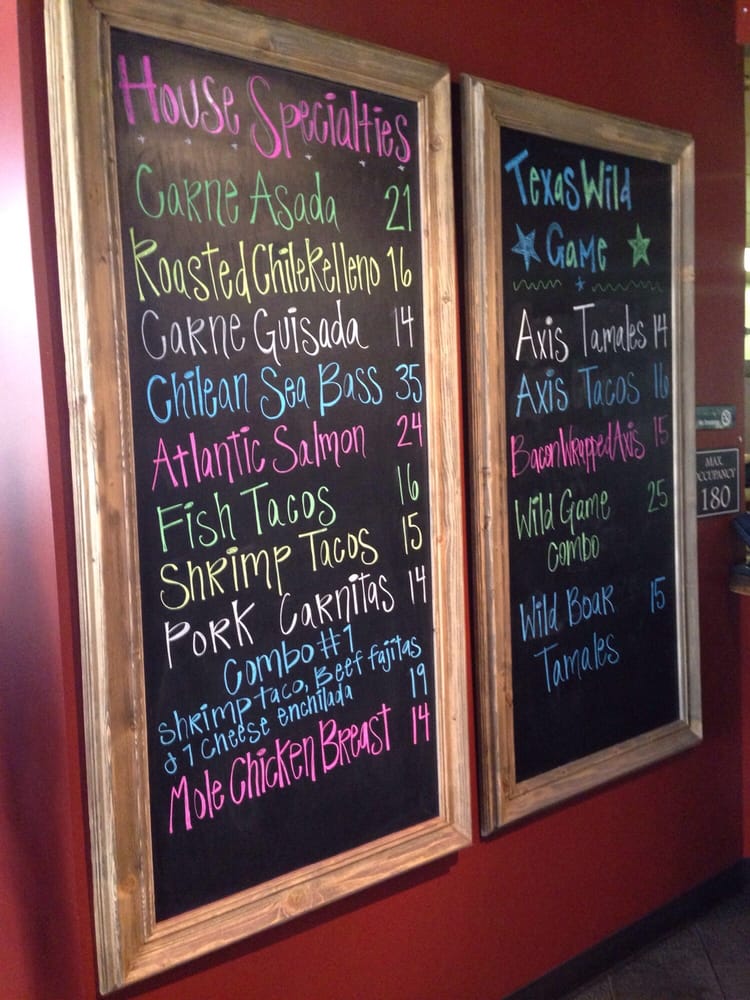 House Specialties
Carne Asada 21
Roasted Chile Relleno 16
Carne Guisada 14
Chilean Sea Bass 35
Atlantic Salmon 24
Fish Tacos 16
Shrimp Tacos 15
Pork Carnitas 14
Combo #1
Shrimp taco, Beef fajitas
& 1 Cheese enchilada 19
Mole Chicken Breast 14
Texas Wild
Game
Axis Tamales 14
Axis Tacos 16
Bacon Wrapped Axis 15
Wild Game 25
Combo
Wild Boar 15
Tamales
MAX.
OCCUPANCY
180